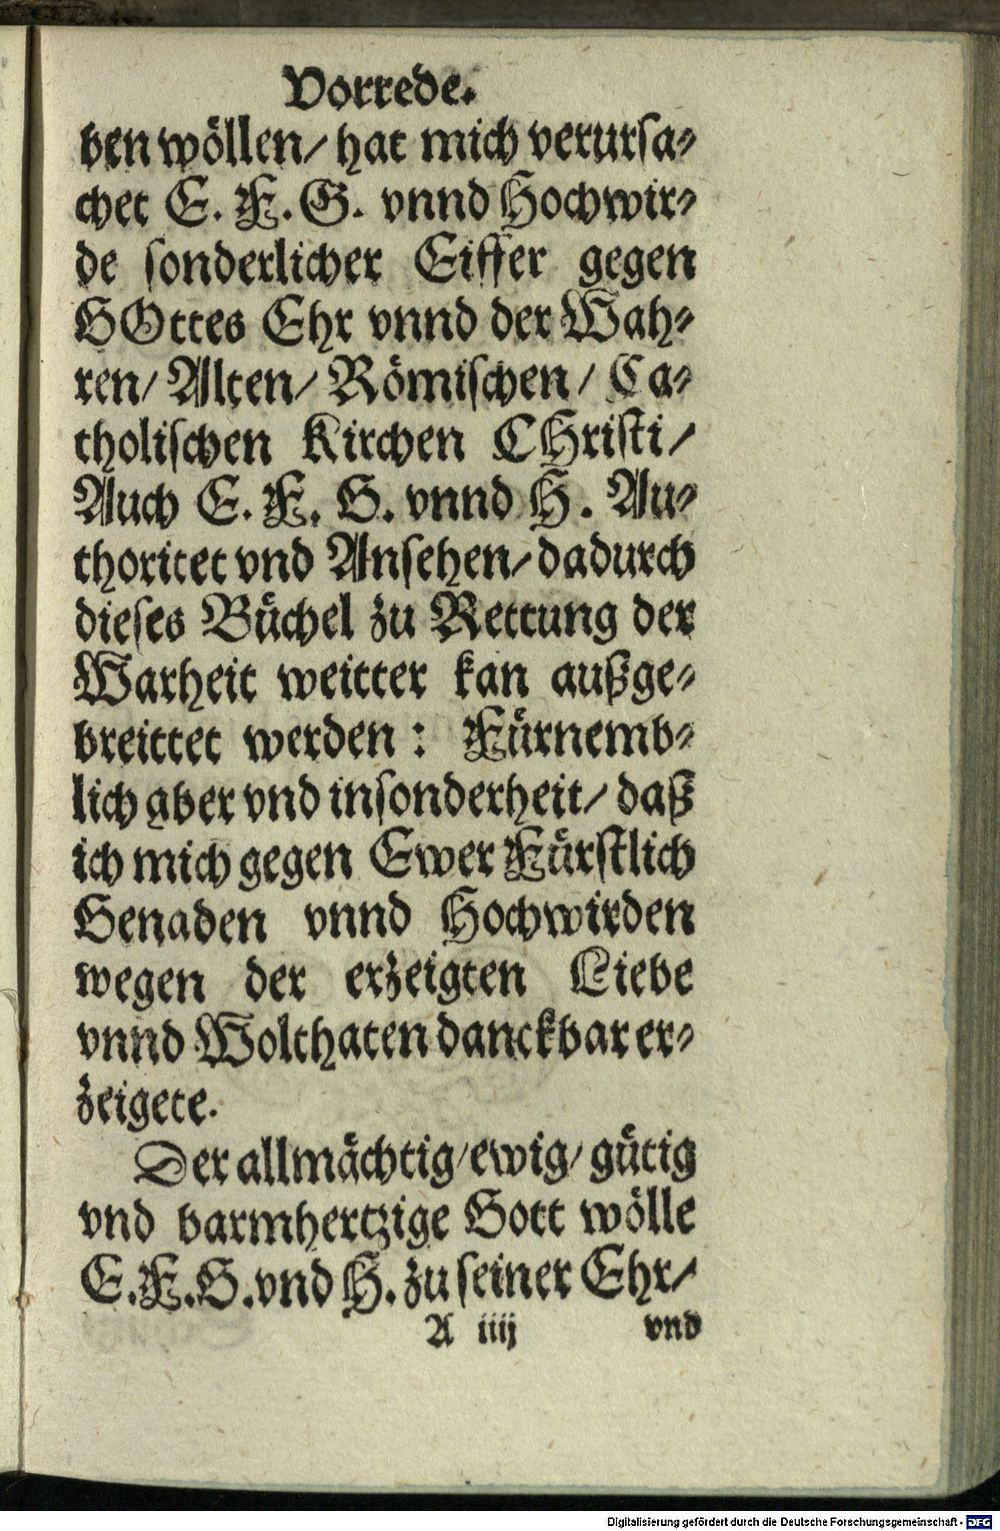 Vorrede.
ben wöllen/ hat mich verursa-
chet E. F. G. vnnd Hochwir-
de sonderlicher Eiffer gegen
GOttes Ehr vnnd der Wah-
ren/ Alten/ Römischen/ Ca-
tholischen Kirchen CHristi/
Auch E. F. G. vnnd H. Au-
thoritet vnd Ansehen/ dadurch
dieses Büchel zu Rettung der
Warheit weitter kan außge-
breittet werden: Fürnemb-
lich aber vnd insonderheit/ daß
ich mich gegen Ewer Fürstlich
Genaden vnnd Hochwirden
wegen der erzeigten Liebe
vnnd Wolthaten danckbar er-
zeigete.
Der allmächtig/ ewig/ gütig
vnd barmhertzige Gott wölle
E. F. G. vnd H. zu seiner Ehr/
A iiij vnd
Digitalisierung gefördert durch die Deutsche Forschungsgemeinschaft - DFG